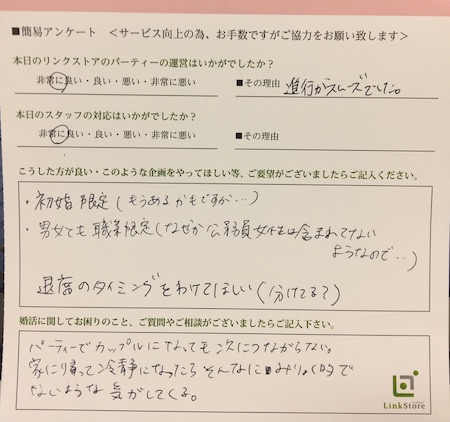 ■簡易アンケート　＜サービス向上の為、お手数ですがご協力をお願い致します＞
本日のリンクストアのパーティーの運営はいかがでしたか？
非常に良い・良い・悪い・非常に悪い　■その理由　進行がスムーズでした。
本日のスタッフの対応はいかがでしたか？
非常に良い・良い・悪い・非常に悪い　■その理由
こうした方が良い・このような企画をやってほしい等、ご要望がございましたらご記入ください。
・初婚限定（もうあるかもですが…）
・男女とも職業限定（なぜか公務員女性は含まれてない
ようなので…）
退席のタイミングをわけてほしい（分けてる？）
婚活に関してお困りのこと、ご質問やご相談がございましたらご記入下さい。
パーティーでカップルになっても次につながらない。
家に帰って冷静になったらそんなに魅力的で
ないような気がしてくる。
LinkStore